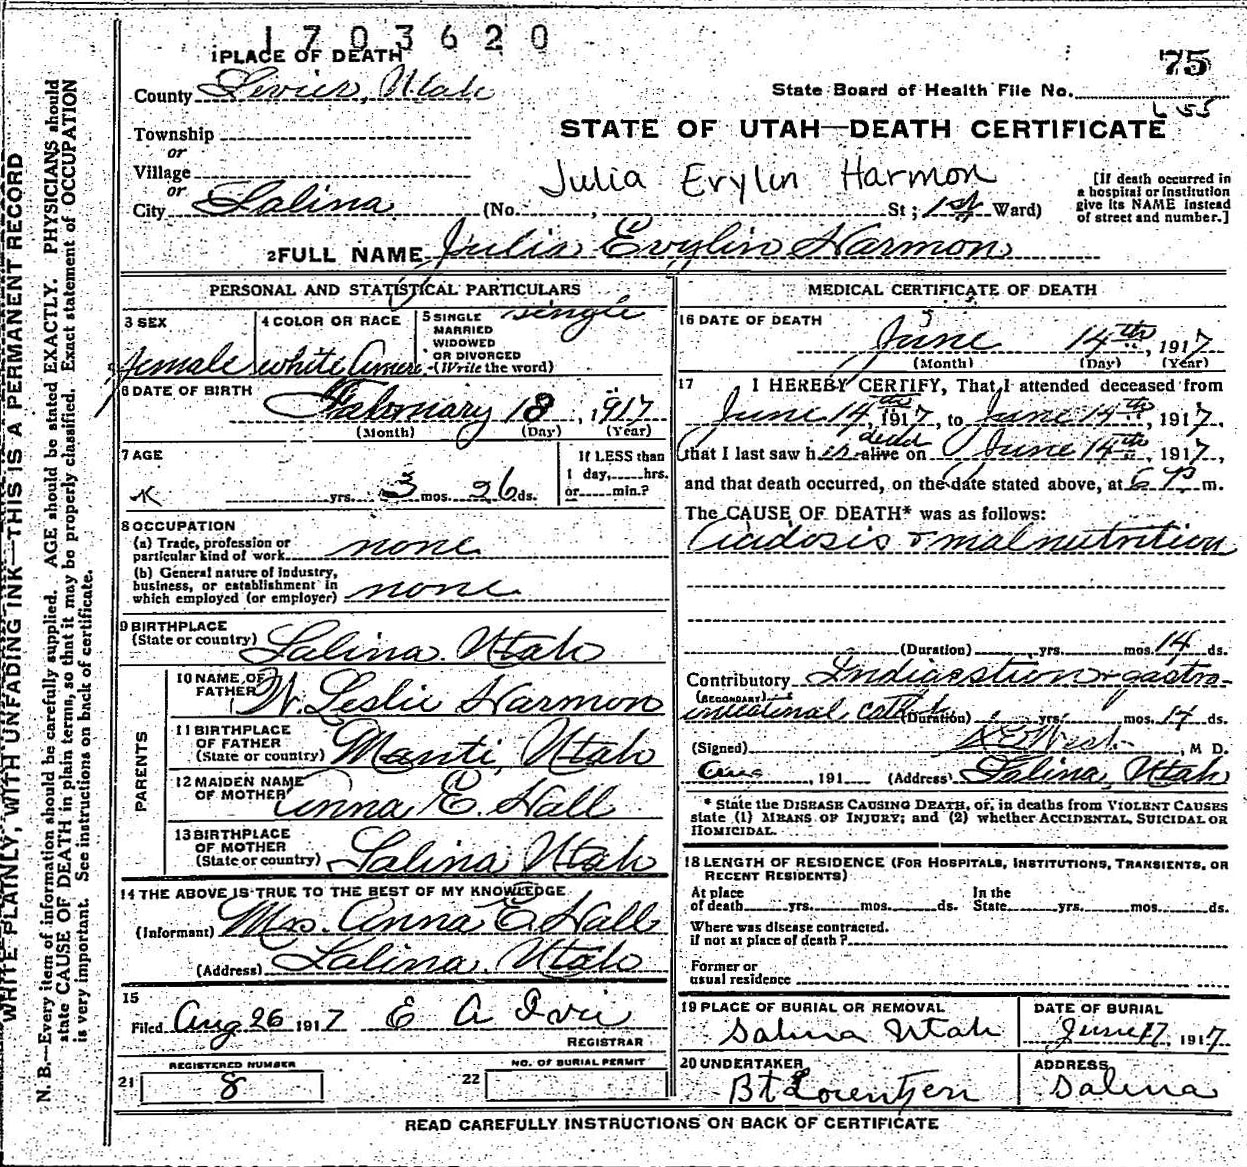 1703620
1 PLACE OF DEATH
75
County Sevier, Utah
State Board of Health File No.
655
Township
STATE OF UTAH—DEATH CERTIFICATE
or
Village
Julia Evylin Harmon
or
City Salina (No. , St ; 1st Ward)
[If death occurred in
a hospital or institution
give its NAME instead
of street and number.]
2 FULL NAME Julia Evylin Harmon
PERSONAL AND STATISTICAL PARTICULARS
3 SEX female
4 COLOR OR RACE white Amer
5 SINGLE
MARRIED
WIDOWED
OR DIVORCED
(Write the word) single
6 DATE OF BIRTH February 18, 1917
(Month) (Day) (Year)
7 AGE
yrs. 3 mos. 26 ds.
If LESS than
1 day, hrs.
or min.?
8 OCCUPATION
(a) Trade, profession or
particular kind of work none
(b) General nature of industry,
business, or establishment in
which employed (or employer) none
9 BIRTHPLACE
(State or country) Salina Utah
PARENTS
10 NAME OF
FATHER W. Leslie Harmon
11 BIRTHPLACE
OF FATHER
(State or country) Manti, Utah
12 MAIDEN NAME
OF MOTHER Anna E. Hall
13 BIRTHPLACE
OF MOTHER
(State or country) Salina Utah
14 THE ABOVE IS TRUE TO THE BEST OF MY KNOWLEDGE
(Informant) Mrs. Anna E. Hall
(Address) Salina, Utah
15
Filed Aug 26 1917 E A
REGISTRAR
21 REGISTERED NUMBER
8
22 NO. OF BURIAL PERMIT
MEDICAL CERTIFICATE OF DEATH
16 DATE OF DEATH
June 14th, 1917
(Month) (Day) (Year)
17 I HEREBY CERTIFY, That I attended deceased from
June 14th, 1917, to June 14th, 1917,
dead
that I last saw her alive on June 14th, 1917,
and that death occurred, on the date stated above, at 6 P m.
The CAUSE OF DEATH* was as follows:
Acidosis & malnutrition
(Duration) yrs. mos. 14 ds.
Contributory Indigestion & gastro-
(SECONDARY)
intestinal (Duration) yrs. mos. 14 ds.
(Signed) West, M D.
, 191 (Address) Salina, Utah
* State the DISEASE CAUSING DEATH, or, in deaths from VIOLENT CAUSES
state (1) MEANS OF INJURY; and (2) whether ACCIDENTAL, SUICIDAL OR
HOMICIDAL.
18 LENGTH OF RESIDENCE (FOR HOSPITALS, INSTITUTIONS, TRANSIENTS, OR
RECENT RESIDENTS)
At place In the
of death yrs. mos. ds. State yrs. mos. ds.
Where was disease contracted.
if not at place of death?
Former or
usual residence
19 PLACE OF BURIAL OR REMOVAL
Salina Utah
DATE OF BURIAL
June 17, 1917
20 UNDERTAKER
Bt Lorentzen
ADDRESS
Salina
READ CAREFULLY INSTRUCTIONS ON BACK OF CERTIFICATE
WRITE PLAINLY, WITH UNFADING INK—THIS IS A PERMANENT RECORD
N. B.—Every item of information should be carefully supplied. AGE should be stated EXACTLY. PHYSICIANS should
state CAUSE OF DEATH in plain terms, so that it may be properly classified. Exact statement of OCCUPATION
is very important. See instructions on back of certificate.